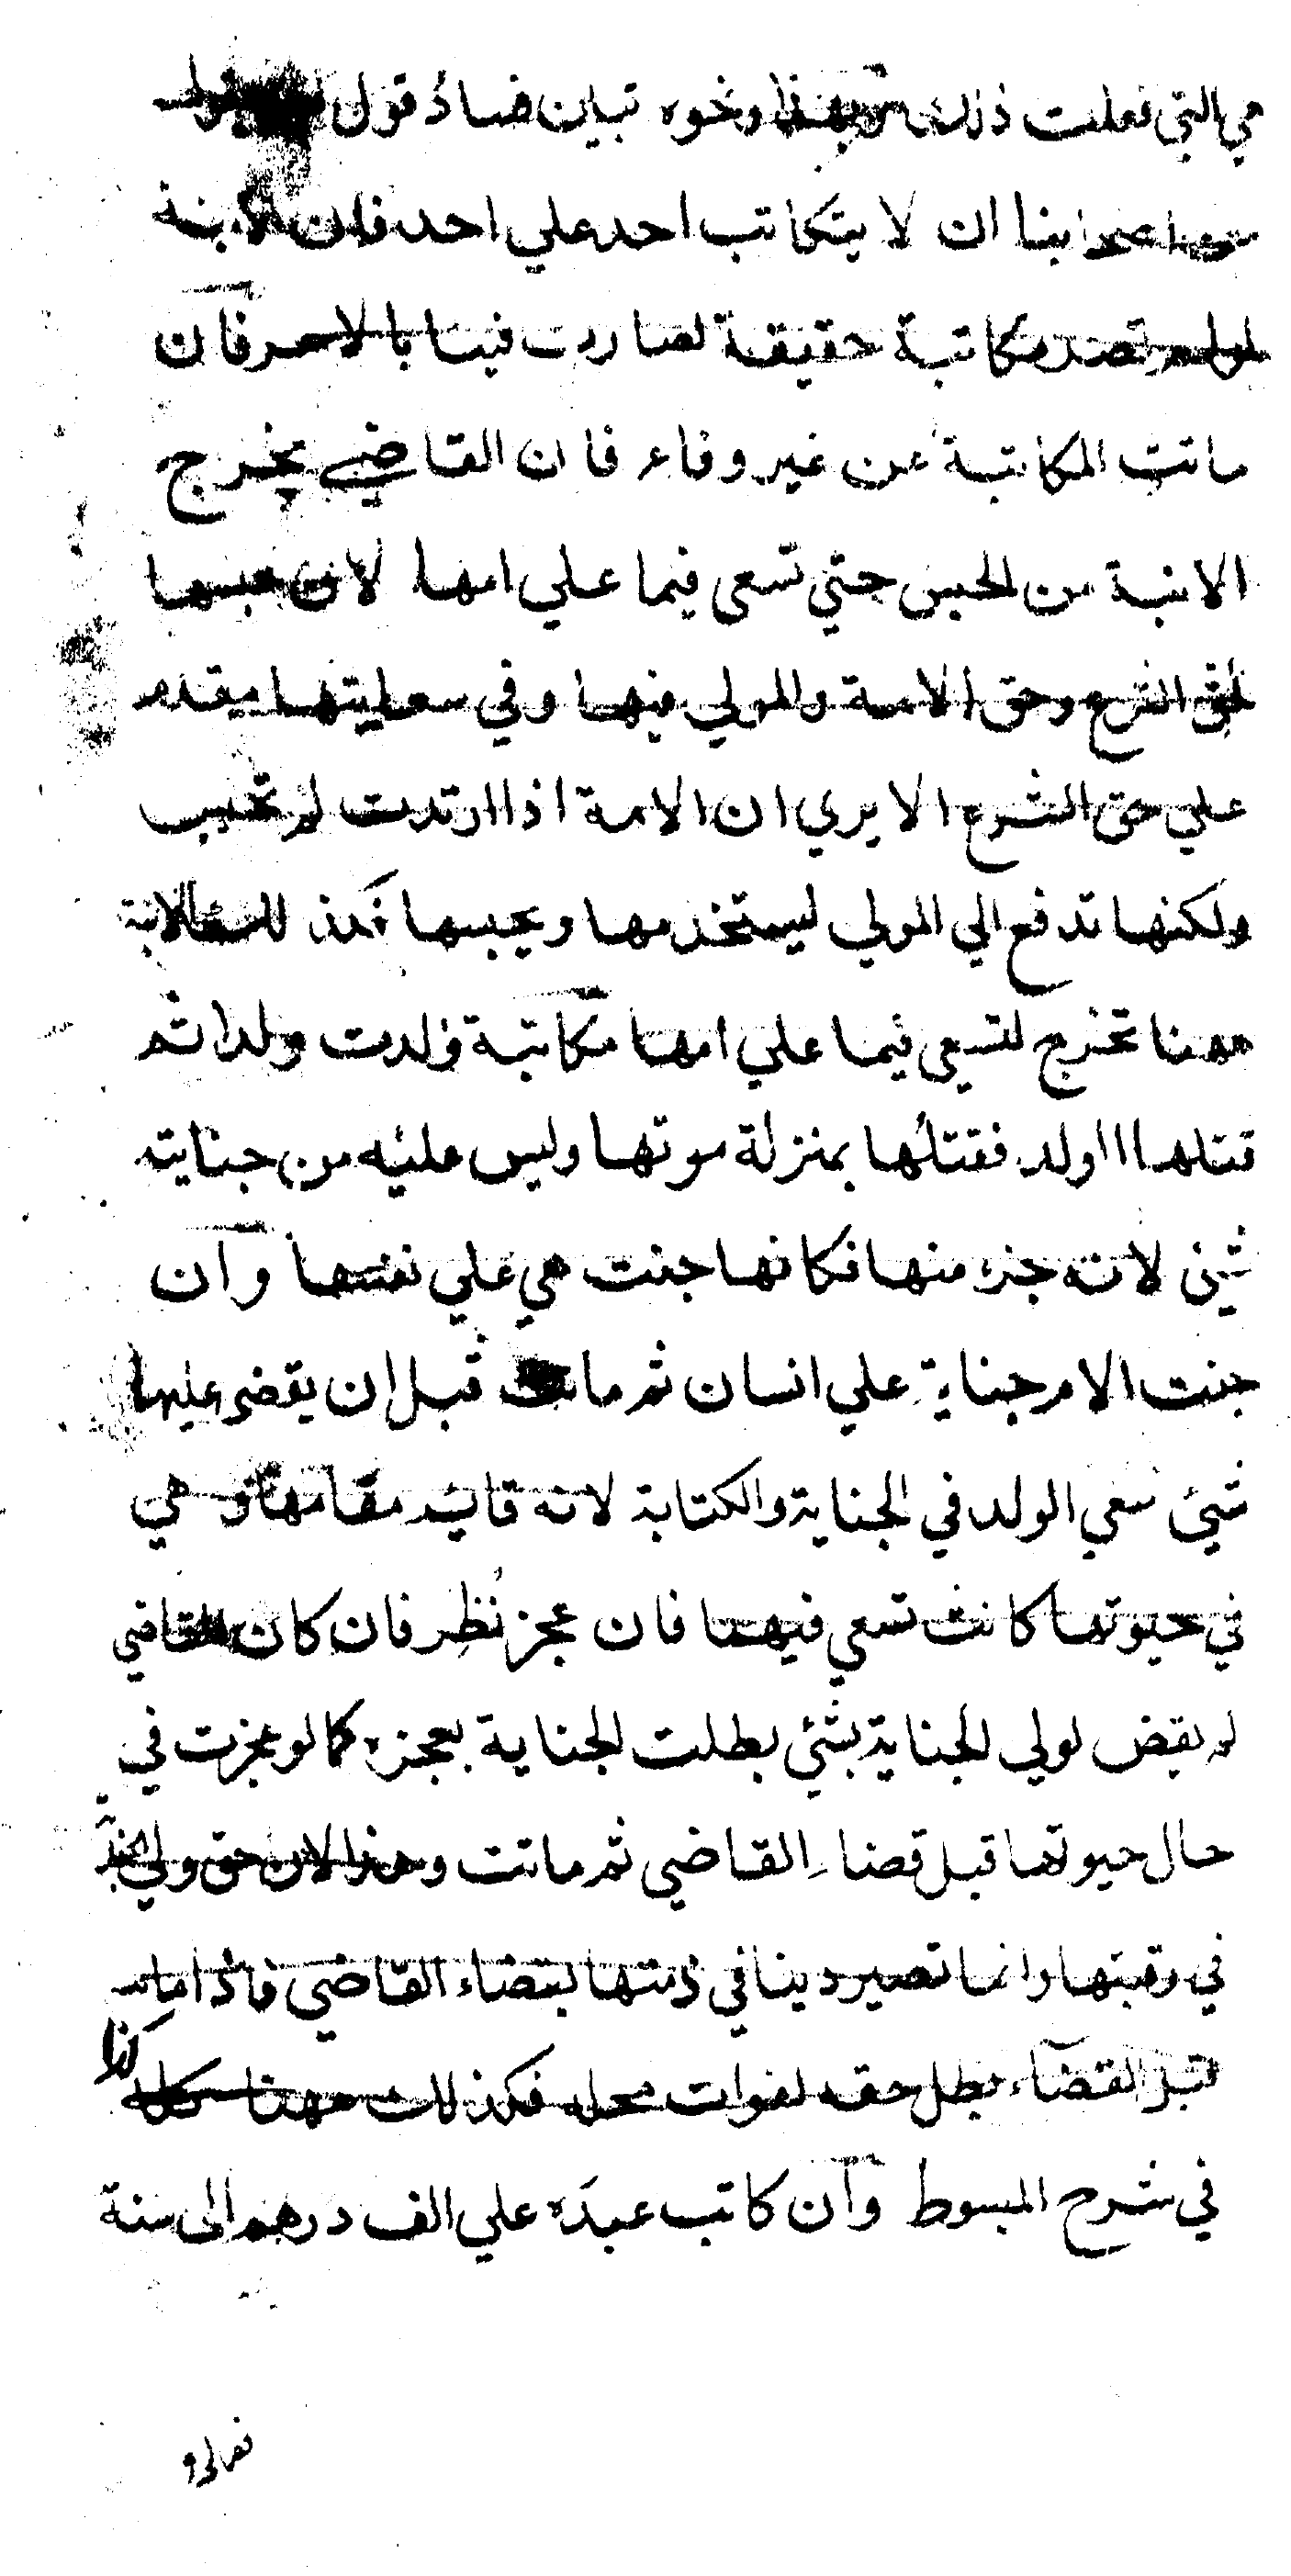 هي التي فعلت ذلك وبهذا ونحوه تبين فساد قول
اصحابنا ان لا يتكاتب احد علي احد فان الابنة
لو لم تصر مكاتبة حقيقة لصارت فيئا بالاسر فان
ماتت المكاتبة عن غير وفاء فان القاضي يخرج
الابنة من الحبس حتي تسعي فيما علي امها لان حبسها
لحق الشرع وحق الامة والمولي فيها وفي سعايتها مقدم
علي حق الشرع الا يري ان الامة اذا ارتدت لم تحبس
ولكنها تدفع الي المولي ليستخدمها ويحبسها فكذلك الابنة
ههنا تخرج لتسعي فيما علي امها مكاتبة ولدت ولدا ثم
قتلها الولد فقتلها بمنزلة موتها وليس عليه من جنايته
شيئ لانه جزء منها فكانها جنت هي علي نفسها وان
جنت الام جناية علي انسان ثم ماتت قبل ان يقضي عليها
شيئ سعي الولد في الجناية والكتابة لانه قائم مقامها وهي
في حيوتها كانت تسعي فيهما فان عجز نظر فان كان القاضي
لم يقض لولي الجناية بشئي بطلت الجناية بعجزه كما لو عجزت في
حال حيوتها قبل قضاء القاضي ثم ماتت وهذا لان حق ولي الجناية
في رقبتها وانما تصير دينا في ذمتها بقضاء القاضي فاذا ماتت
قبل القضاء بطل حقه لفوات محله فكذلك ههنا كله كذا
في شرح المبسوط وان كاتب عبده علي الف درهم الى سنة